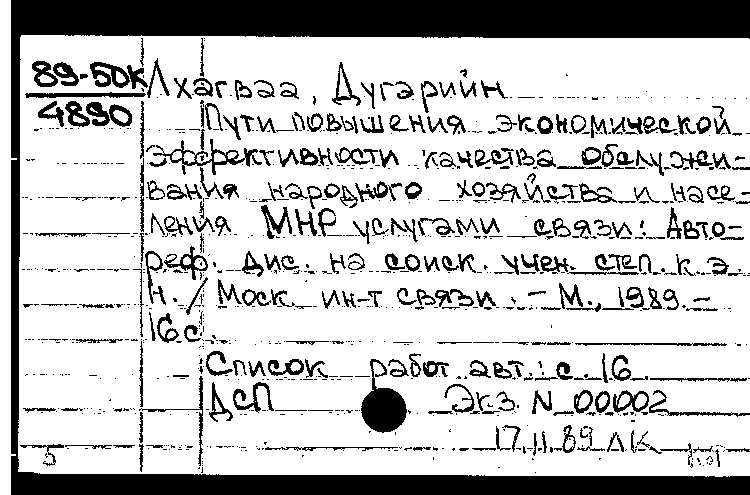 89-50к
4890
Лхагваа, Дугэрийн
Пути повышения экономической
эффективности качества обслужи-
вания народного хозяйства и насе-
ления МНР услугами связи: Авто-
реф. дис. на соиск. учен. степ. к. э.
н. / Моск. ин-т связи. - М., 1989. -
16 с.
Список работ авт.: с. 16
ДСП Экз. N 00002
17.11.89 ЛК
5